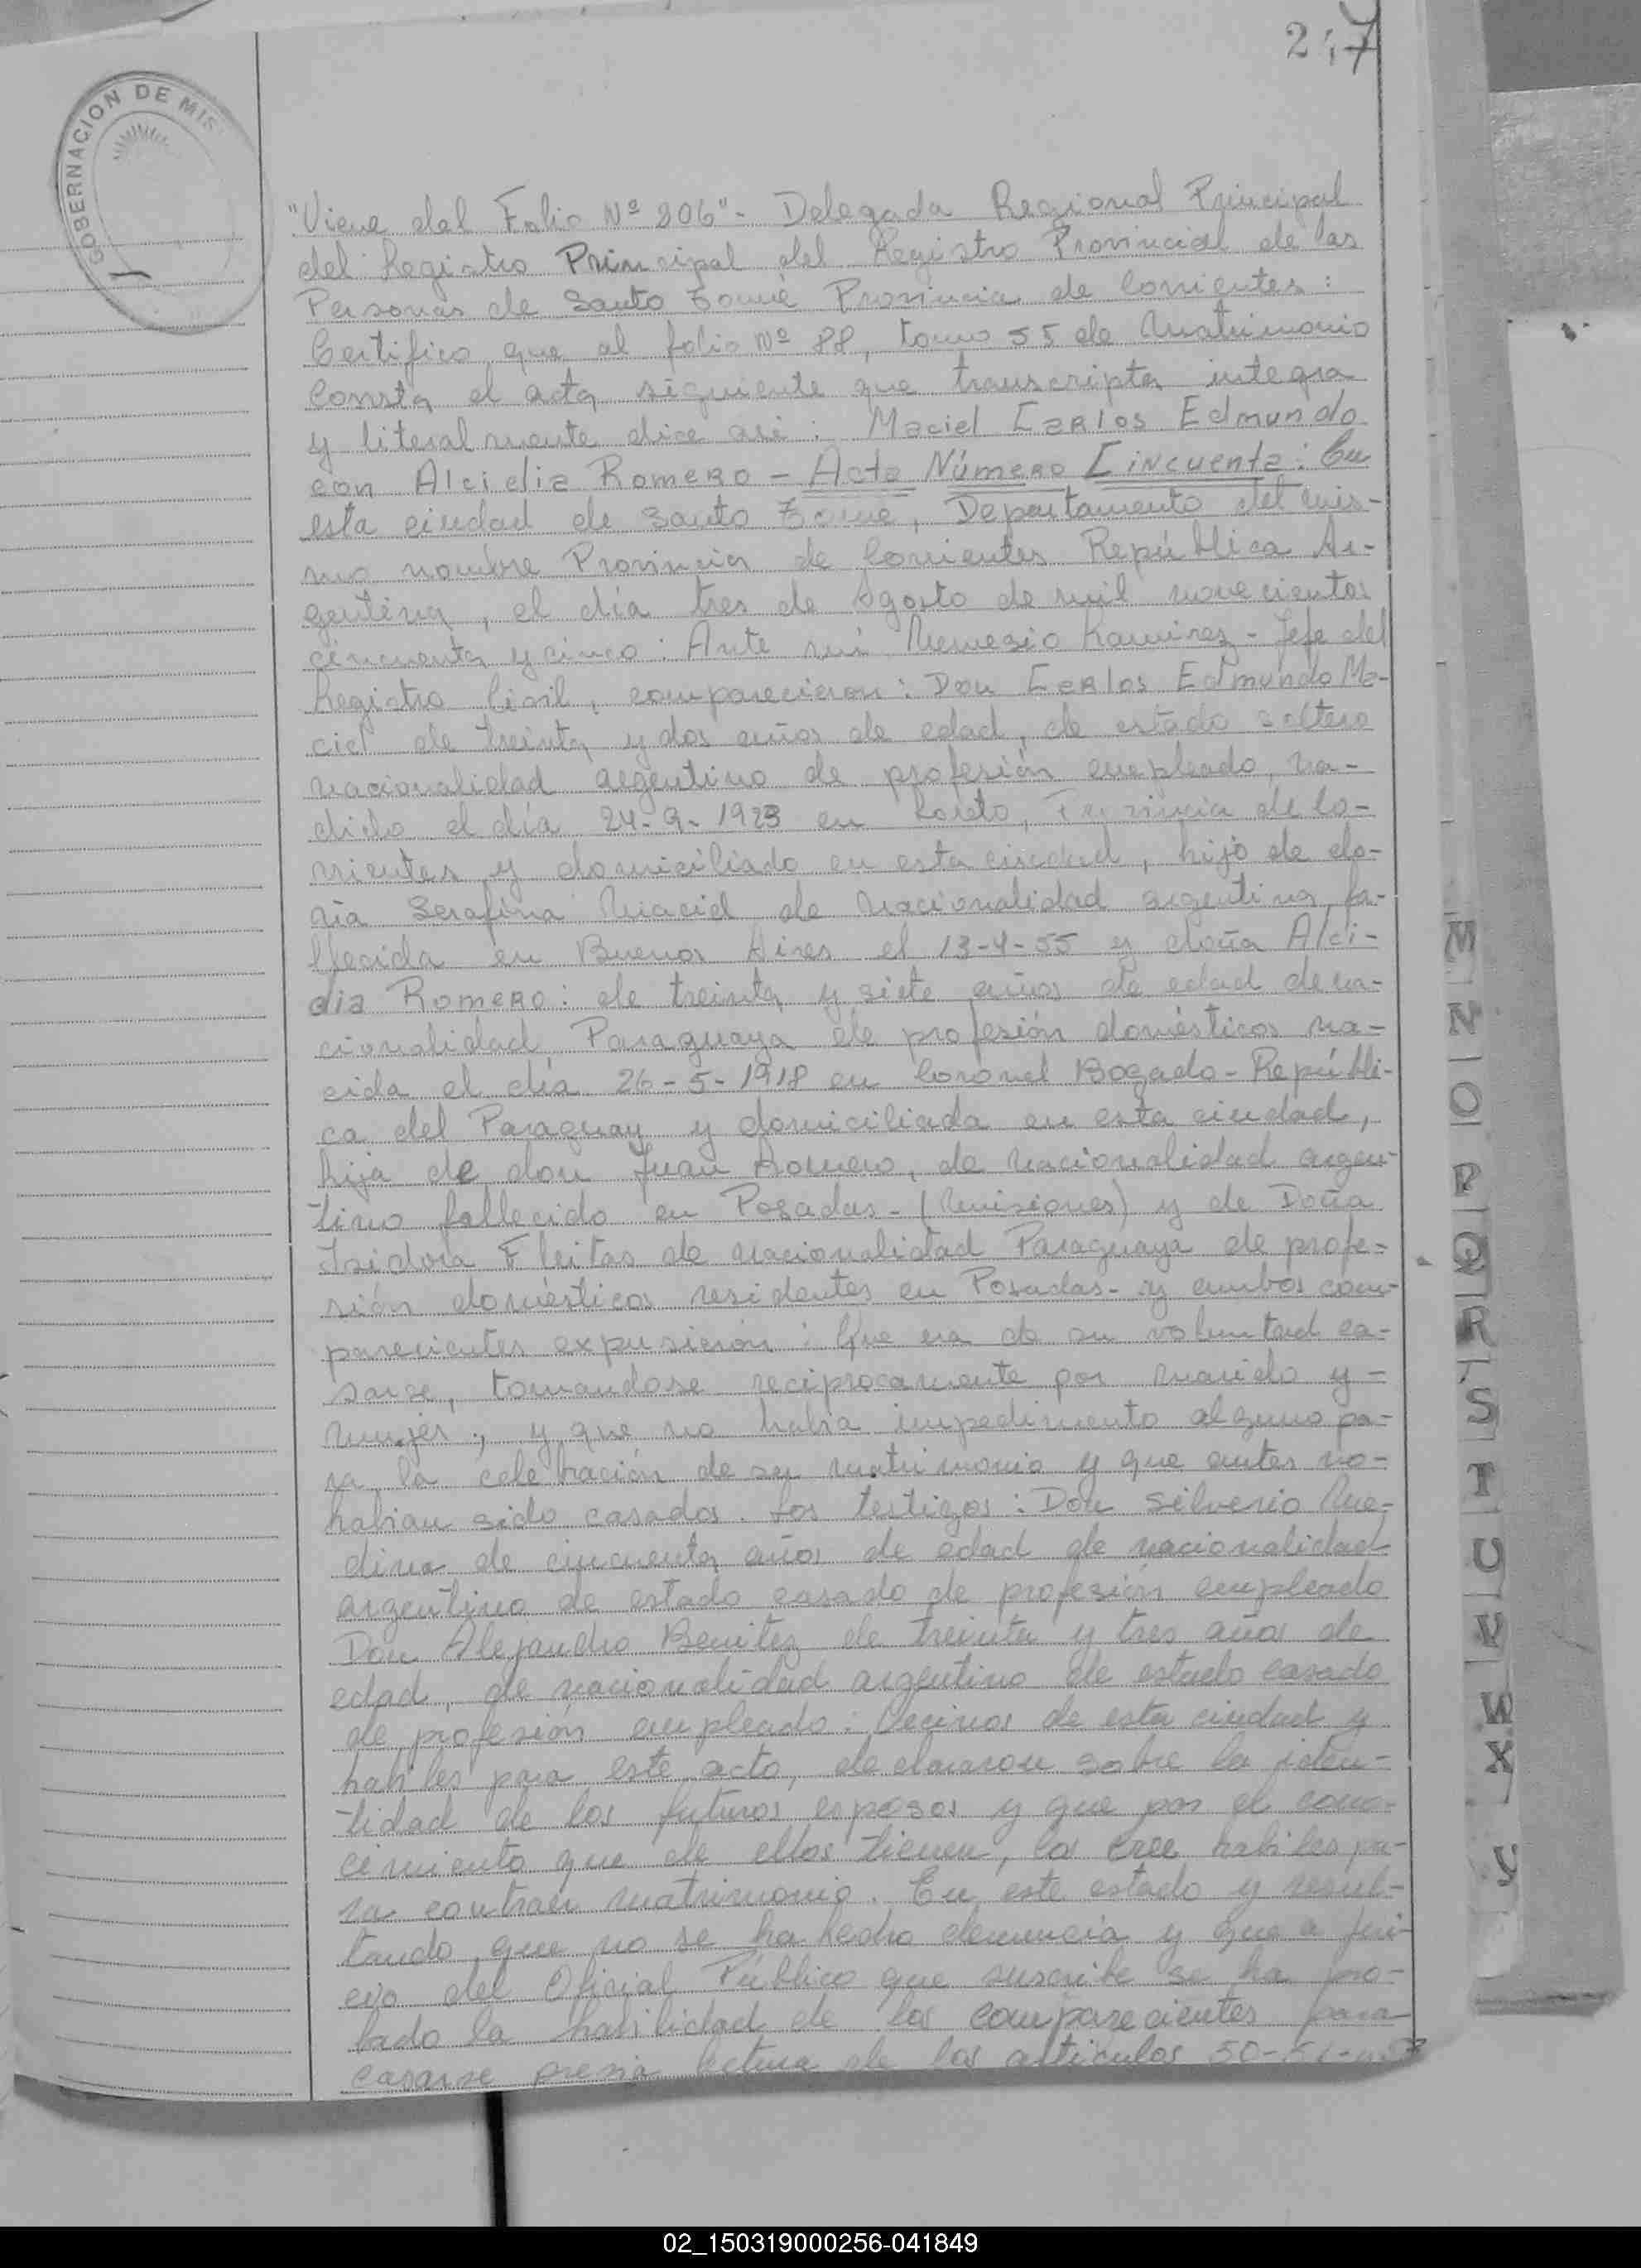 247
GOBERNACION DE MIS
"Viene del Folio Nº 206"- Delegada Regional Principal
del Registro Principal del Registro Provincial de las
Personas de Santo Tomé Provincia de Corrientes:
Certifico que al folio Nº 88, tomo 55 de Matrimonio
Consta el acta siguiente que transcripta integra
y literalmente dice asi: Maciel Carlos Edmundo
con Alcidia Romero - Acta Número Cincuenta: En
esta ciudad de Santo Tomé, Departamento del mis-
mo nombre Provincia de Corrientes República Ar-
gentina, el día tres de Agosto de mil novecientos
cincuenta y cinco: Ante mi Nemesio Ramirez - Jefe del
Registro Civil, comparecieron: Don Carlos Edmundo Ma-
ciel de treinta y dos años de edad, de estado soltero
nacionalidad argentino de profesión empleado, na-
cido el día 24-9-1923 en Loreto, Provincia de Co-
rrientes y domiciliado en esta ciudad, hijo de do-
ña Serafina Maciel de nacionalidad argentina fa-
llecida en Buenos Aires el 13-4-55 y doña Alci-
dia Romero: de treinta y siete años de edad de na-
cionalidad Paraguaya de profesión domésticos na-
cida el día 26-5-1918 en Coronel Bogado - Repúbli-
ca del Paraguay y domiciliada en esta ciudad,
hija de don Juan Romero, de nacionalidad argen-
tino fallecido en Posadas - (Misiones) y de Doña
Isidora Fleitas de nacionalidad Paraguaya de profe-
sión domésticos residentes en Posadas - y ambos com-
parecientes expusieron: Que era de su voluntad ca-
sarse, tomandose reciprocamente por marido y -
mujer, y que no habia impedimento alguno pa-
ra la celebración de su matrimonio y que antes no-
habian sido casados. Los testigos: Don Silverio Me-
dina de cincuenta años de edad de nacionalidad
argentino de estado casado de profesión empleado
Don Alejandro Benitez de treinta y tres años de
edad, de nacionalidad argentino de estado casado
de profesión empleado: Vecinos de esta ciudad y
habiles para este acto, declararon sobre la iden-
tidad de los futuros esposos y que por el cono-
cimiento que de ellos tienen, los cree habiles pa-
ra contraer matrimonio. En este estado y resul-
tando que no se ha hecho denuncia y que a jui-
cio del Oficial Público que suscribe se ha pro-
bado la habilidad de los comparecientes para
casarse previa lectura de los artículos 50-51-
M
N
O
P
Q
R
S
T
U
V
W
X
Y
02_150319000256-041849